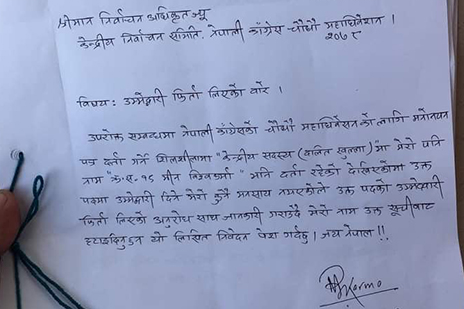 श्रीमान निर्वाचन अधिकृत ज्यू
केन्द्रीय निर्वाचन समिति, नेपाली काँग्रेस चौधौं महाधिवेशन ।
२०७८
विषय: उम्मेद्वारी फिर्ता लिएको बारे ।
उपरोक्त सम्बन्धमा नेपाली काँग्रेसको चौधौं महाधिवेसनको लागि मनोनयन
पत्र दर्ता गर्ने शिलशीलामा "केन्द्रीय सदस्य (दलित खुल्ला) मा मेरो पनि
नाम "क्र.स. १६ मीन विश्वकर्मा" भनि दर्ता गरेको देखिएकोमा उक्त
पदमा उम्मेद्वारी दिने मेरो कुनै मनसाय नभएकोले उक्त पदको उम्मेद्वारी
फिर्ता लिएको अनुरोध साथ जानकारी गराउदै मेरो नाम उक्त सूचीबाट
हटाईदिनुहुन यो लिखित निवेदन पेश गर्दछु । जय नेपाल !!